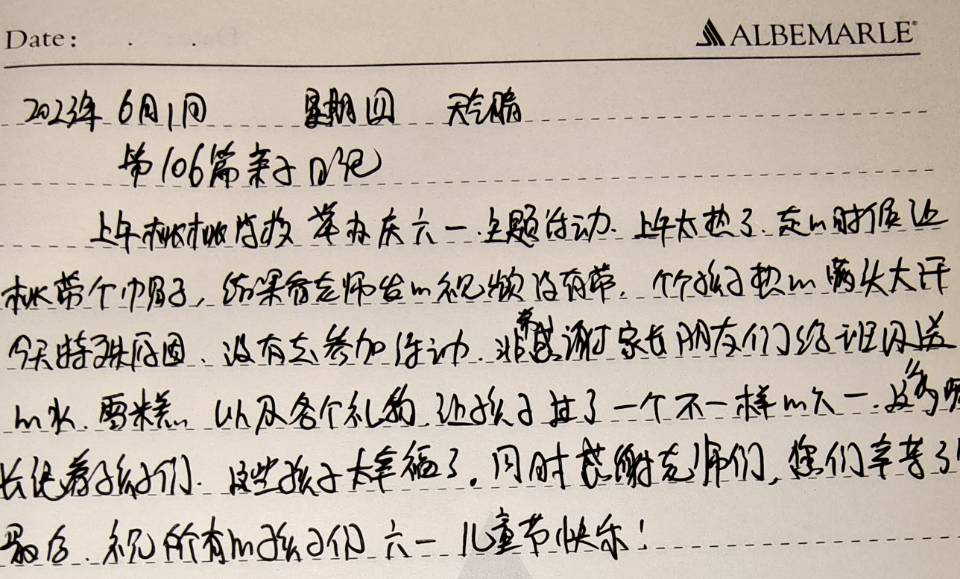 Date: . .
ALBEMARLE
2023年 6月1日 星期四 天气晴
第106篇亲子日记
上午桃桃学校举办庆六一主题活动. 上午太热了. 走的时候让
桃带个巾帽子, 结果看老师发的视频没有带. 个个孩子热的满头大汗
今天特殊原因、没有去参加活动. 非常感谢家长朋友们给班级送
的水、雪糕. 以及各个礼物 让孩子过了一个不一样的六一. 这多
长记着孩子们. 这些孩子太幸福了. 同时感谢老师们, 您们辛苦了!
最后、祝所有的孩子们六一儿童节快乐!